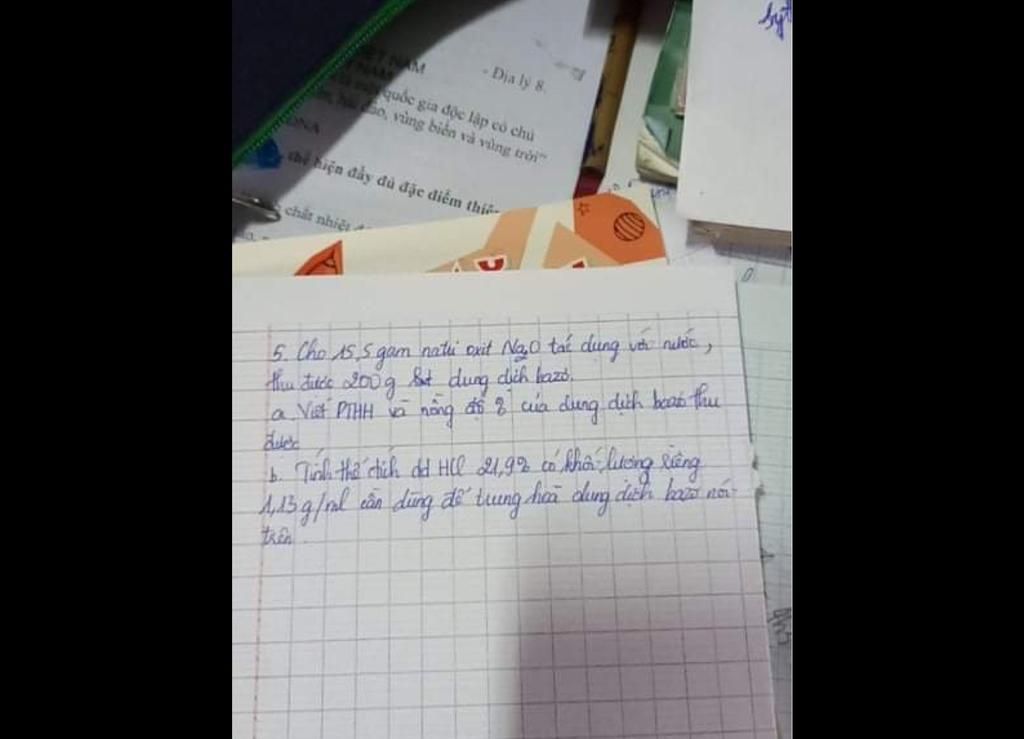 VIỆT NAM - Địa lý 8.
quốc gia độc lập có chủ
đảo, vùng biển và vùng trời"
thể hiện đầy đủ đặc điểm
chất nhiệt
5. Cho 15,5 gam natri oxit Na2O tác dụng với nước,
thu được 200g dung dịch bazơ.
a. Viết PTHH và nồng độ % của dung dịch bazơ thu
được
b. Tính thể tích dd HCl 21,9% có khối lượng riêng
1,13 g/ml cần dùng để trung hoà dung dịch bazơ nói
trên.